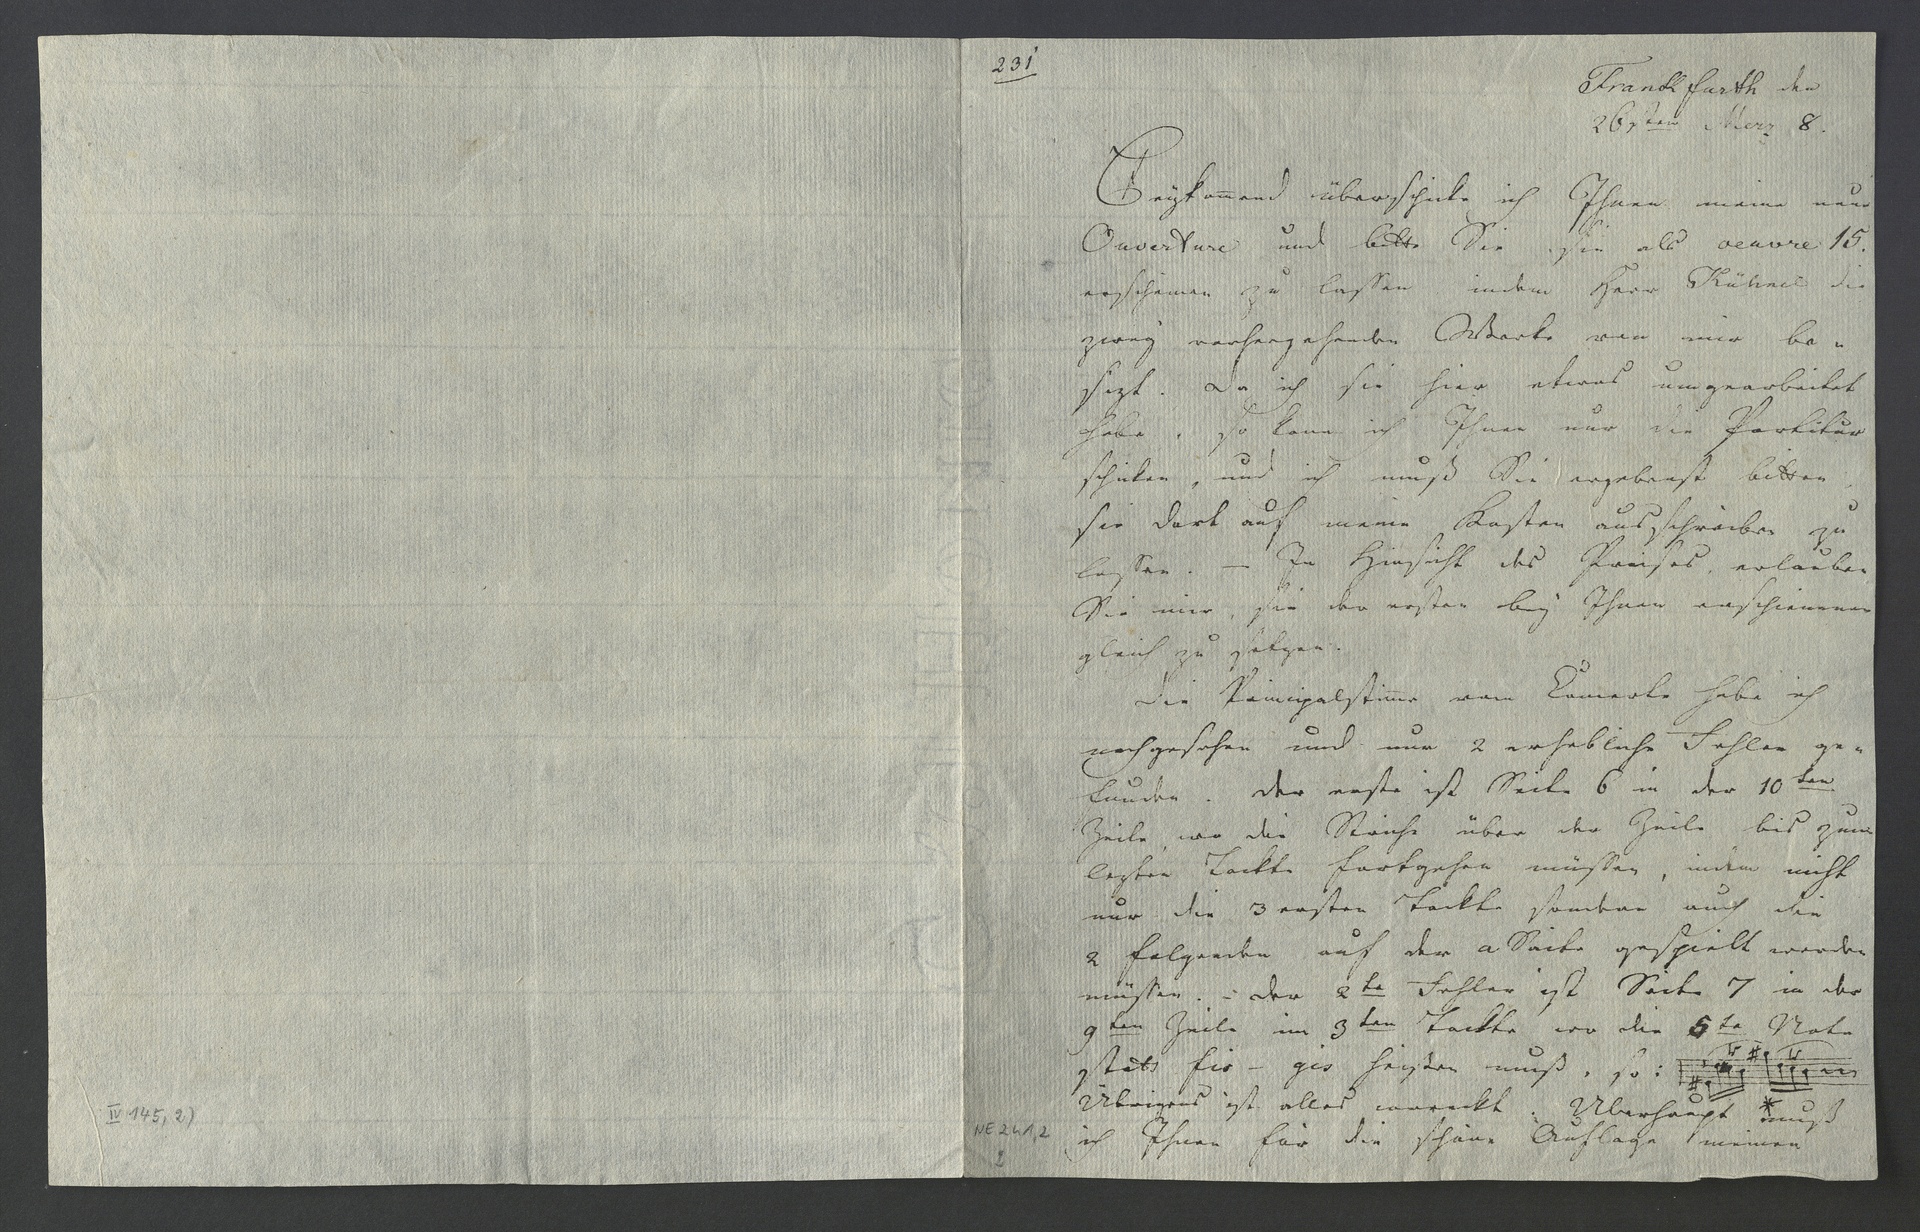 231
Franckfurth den
26sten Merz 8.
Beykommend überschicke ich Ihnen meine neue
Ouverture und bitte Sie sie als oeuvre 15.
erscheinen zu lassen indem Herr Kühnel die
zwey vorhergehenden Werke von mir be-
sizt. Da ich sie hier etwas umgearbeitet
habe, so kann ich Ihnen nur die Partitur
schicken, und ich muß Sie ergebenst bitten
sie dort auf meine Kosten ausschreiben zu
lassen. — In Hinsicht des Preises, erlauben
Sie mir, sie der ersten bey Ihnen erschienenen
gleich zu setzen.
Die Principalstimme vom Concerte habe ich
nachgesehen und nur 2 erhebliche Fehler ge-
funden. Der erste ist Seite 6 in der 10ten
Zeile, wo die Striche über der Zeile bis zum
lezten Tackte fortgehen müssen, indem nicht
nur die 3 ersten Tackte sondern auch die
2 folgenden auf der a Saite gespielt werden
müssen. – Der 2te Fehler ist Seite 7 in der
9ten Zeile im 3ten Tackte wo die 5te Note
statt fis – gis heißen muß, so:
Übrigens ist alles correckt. Überhaupt muß
ich Ihnen für die schöne Auflage meinen
IV 145, 2)
NE 241,2